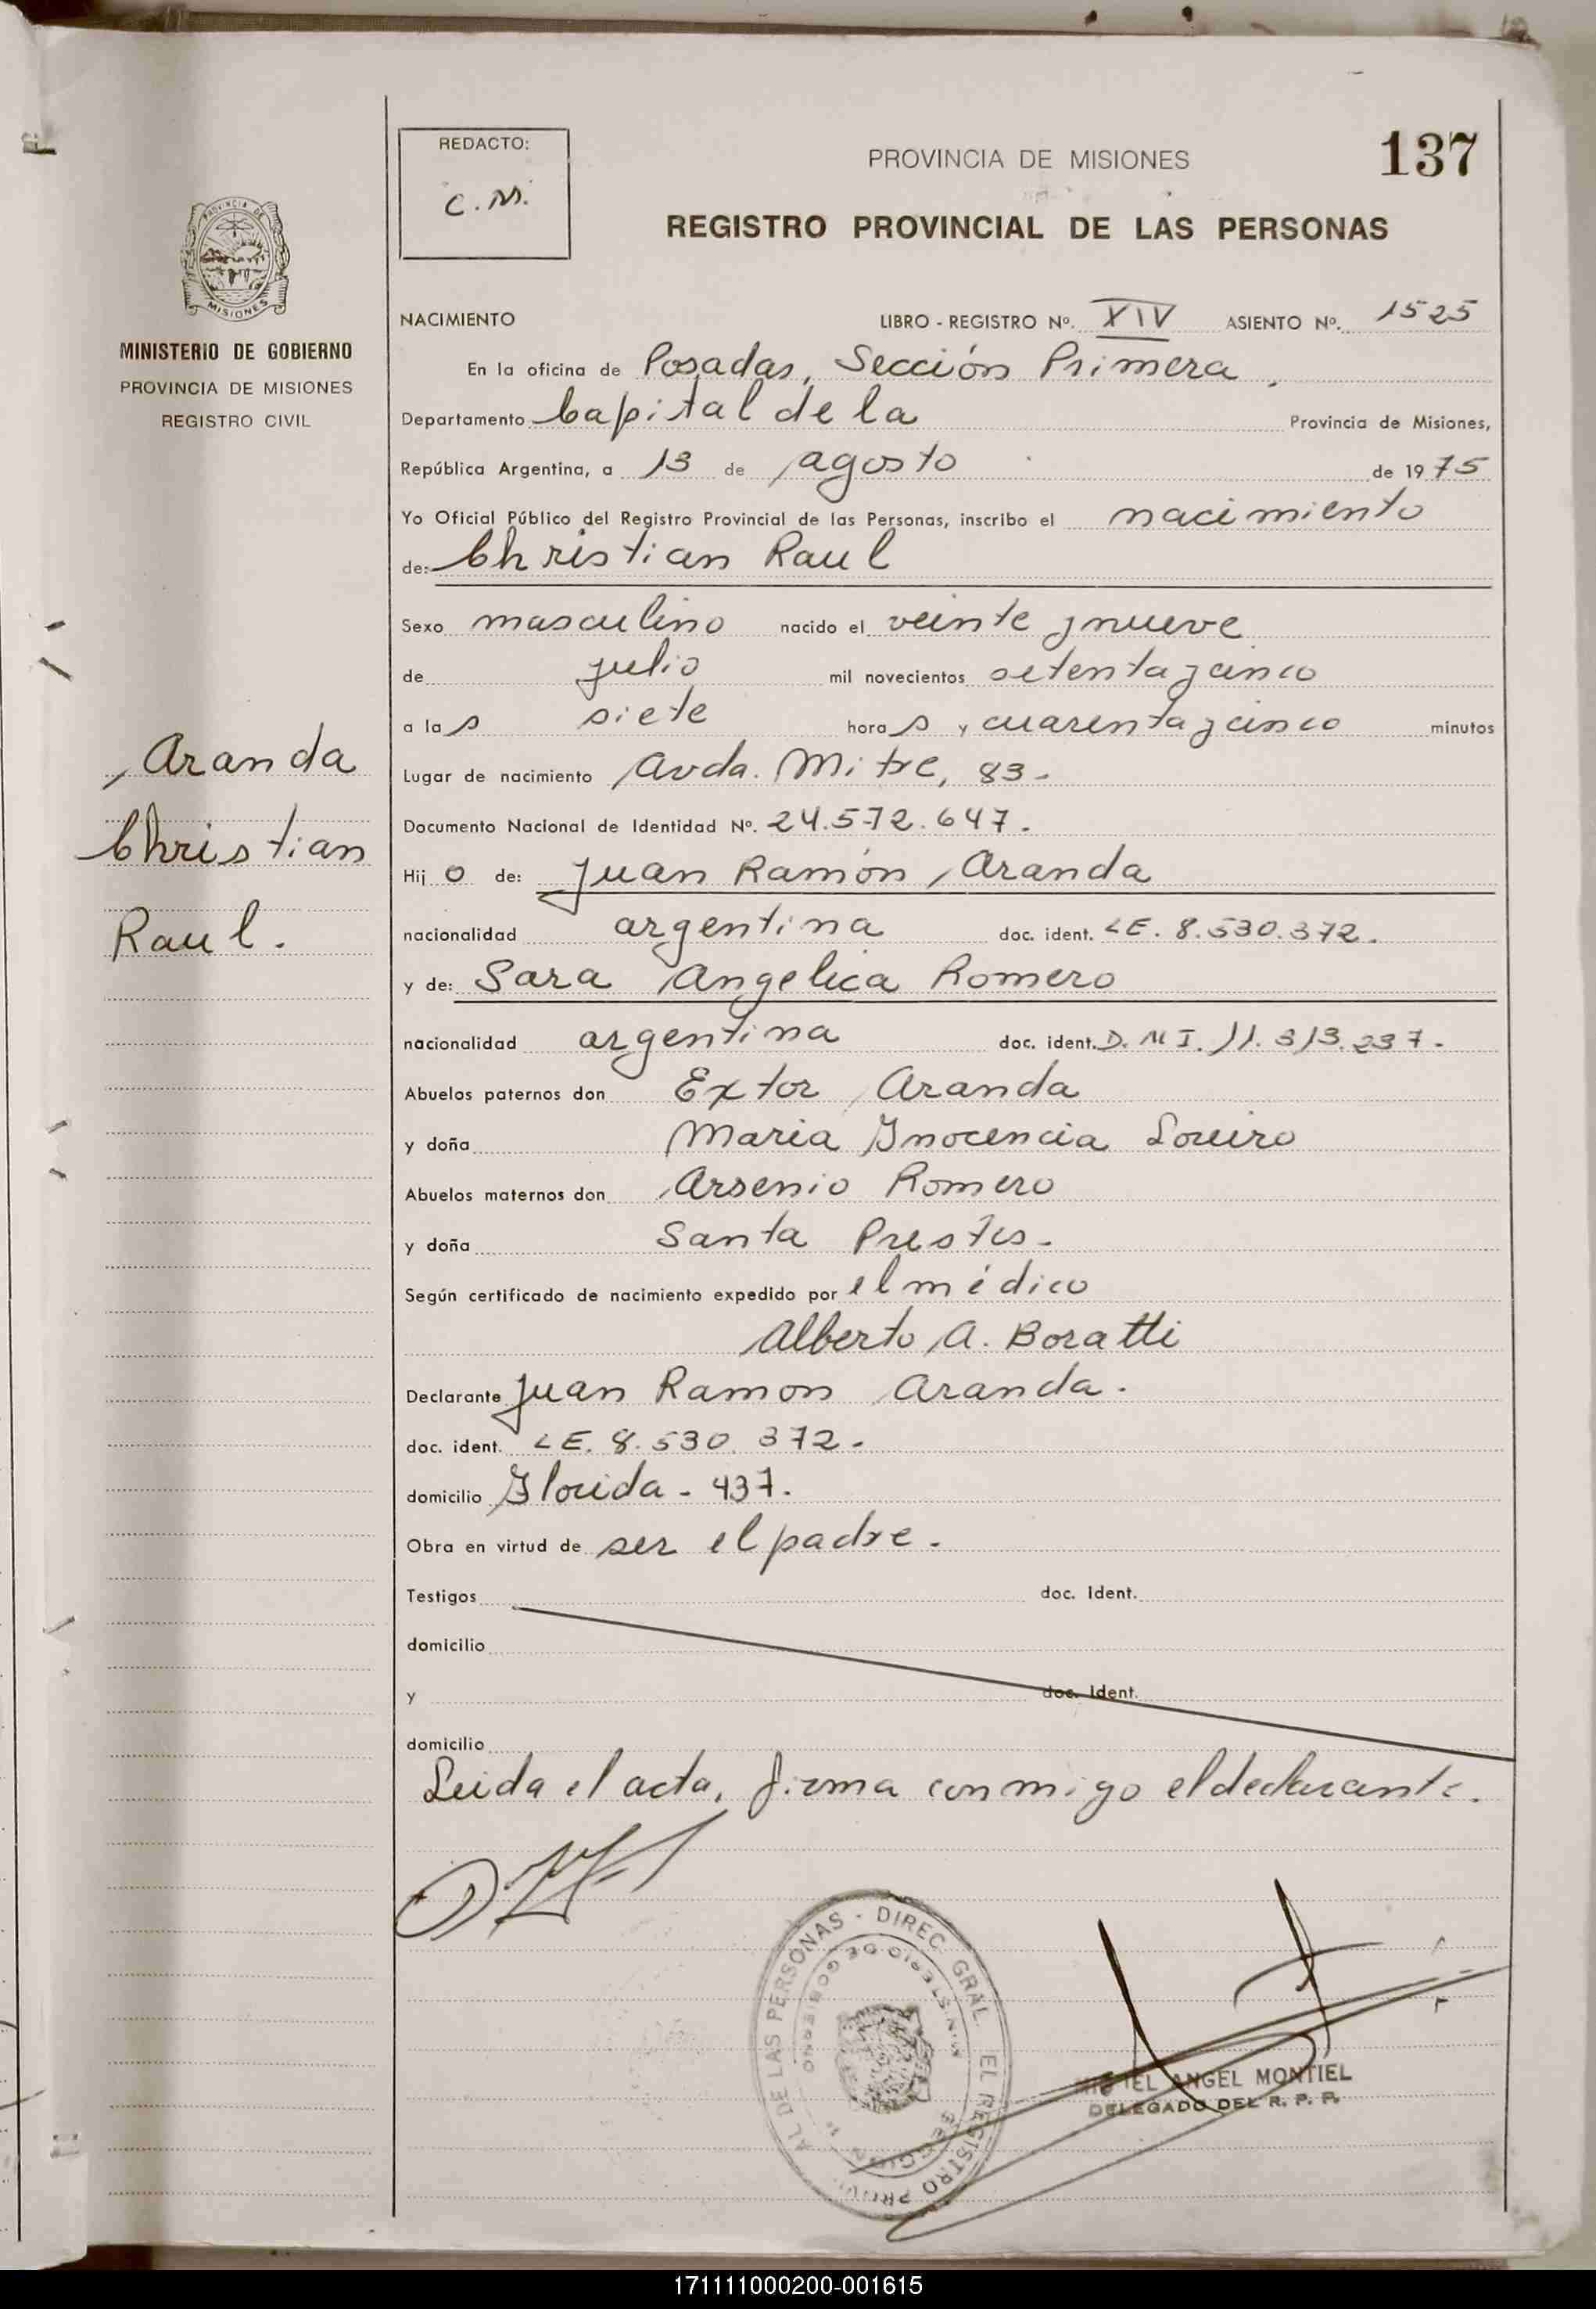 REDACTO:
C. M.
PROVINCIA DE MISIONES
137
REGISTRO PROVINCIAL DE LAS PERSONAS
PROVINCIA DE
MISIONES
MINISTERIO DE GOBIERNO
PROVINCIA DE MISIONES
REGISTRO CIVIL
NACIMIENTO LIBRO - REGISTRO Nº. XIV ASIENTO Nº. 1525
En la oficina de Posadas, Sección Primera,
Departamento Capital de la Provincia de Misiones,
República Argentina, a 13 de agosto de 1975
Yo Oficial Público del Registro Provincial de las Personas, inscribo el nacimiento
de: Christian Raul
Sexo masculino nacido el veinte y nueve
de julio mil novecientos setenta y cinco
a las siete horas y cuarenta y cinco minutos
Aranda
Christian
Raul.
Lugar de nacimiento Avda. Mitre, 83.
Documento Nacional de Identidad Nº. 24.572.647.
Hijo de: Juan Ramón Aranda
nacionalidad argentina doc. ident. LE. 8.530.372.
y de: Sara Angelica Romero
nacionalidad argentina doc. ident. D.N.I. 11.313.237.
Abuelos paternos don Extor Aranda
y doña Maria Inocencia Loreiro
Abuelos maternos don Arsenio Romero
y doña Santa Prestes.
Según certificado de nacimiento expedido por el médico
Alberto A. Boratti
Declarante Juan Ramon Aranda.
doc. ident. LE. 8.530.372.
domicilio Florida - 437.
Obra en virtud de ser el padre.
Testigos doc. Ident.
domicilio
y doc. Ident.
domicilio
Leida el acta, firma conmigo el declarante.
AL DE LAS PERSONAS - DIREC. GRAL. EL REGISTRO PROVI
MINISTERIO DE GOBIERNO
MIGUEL ANGEL MONTIEL
DELEGADO DEL R. P. P.
171111000200-001615